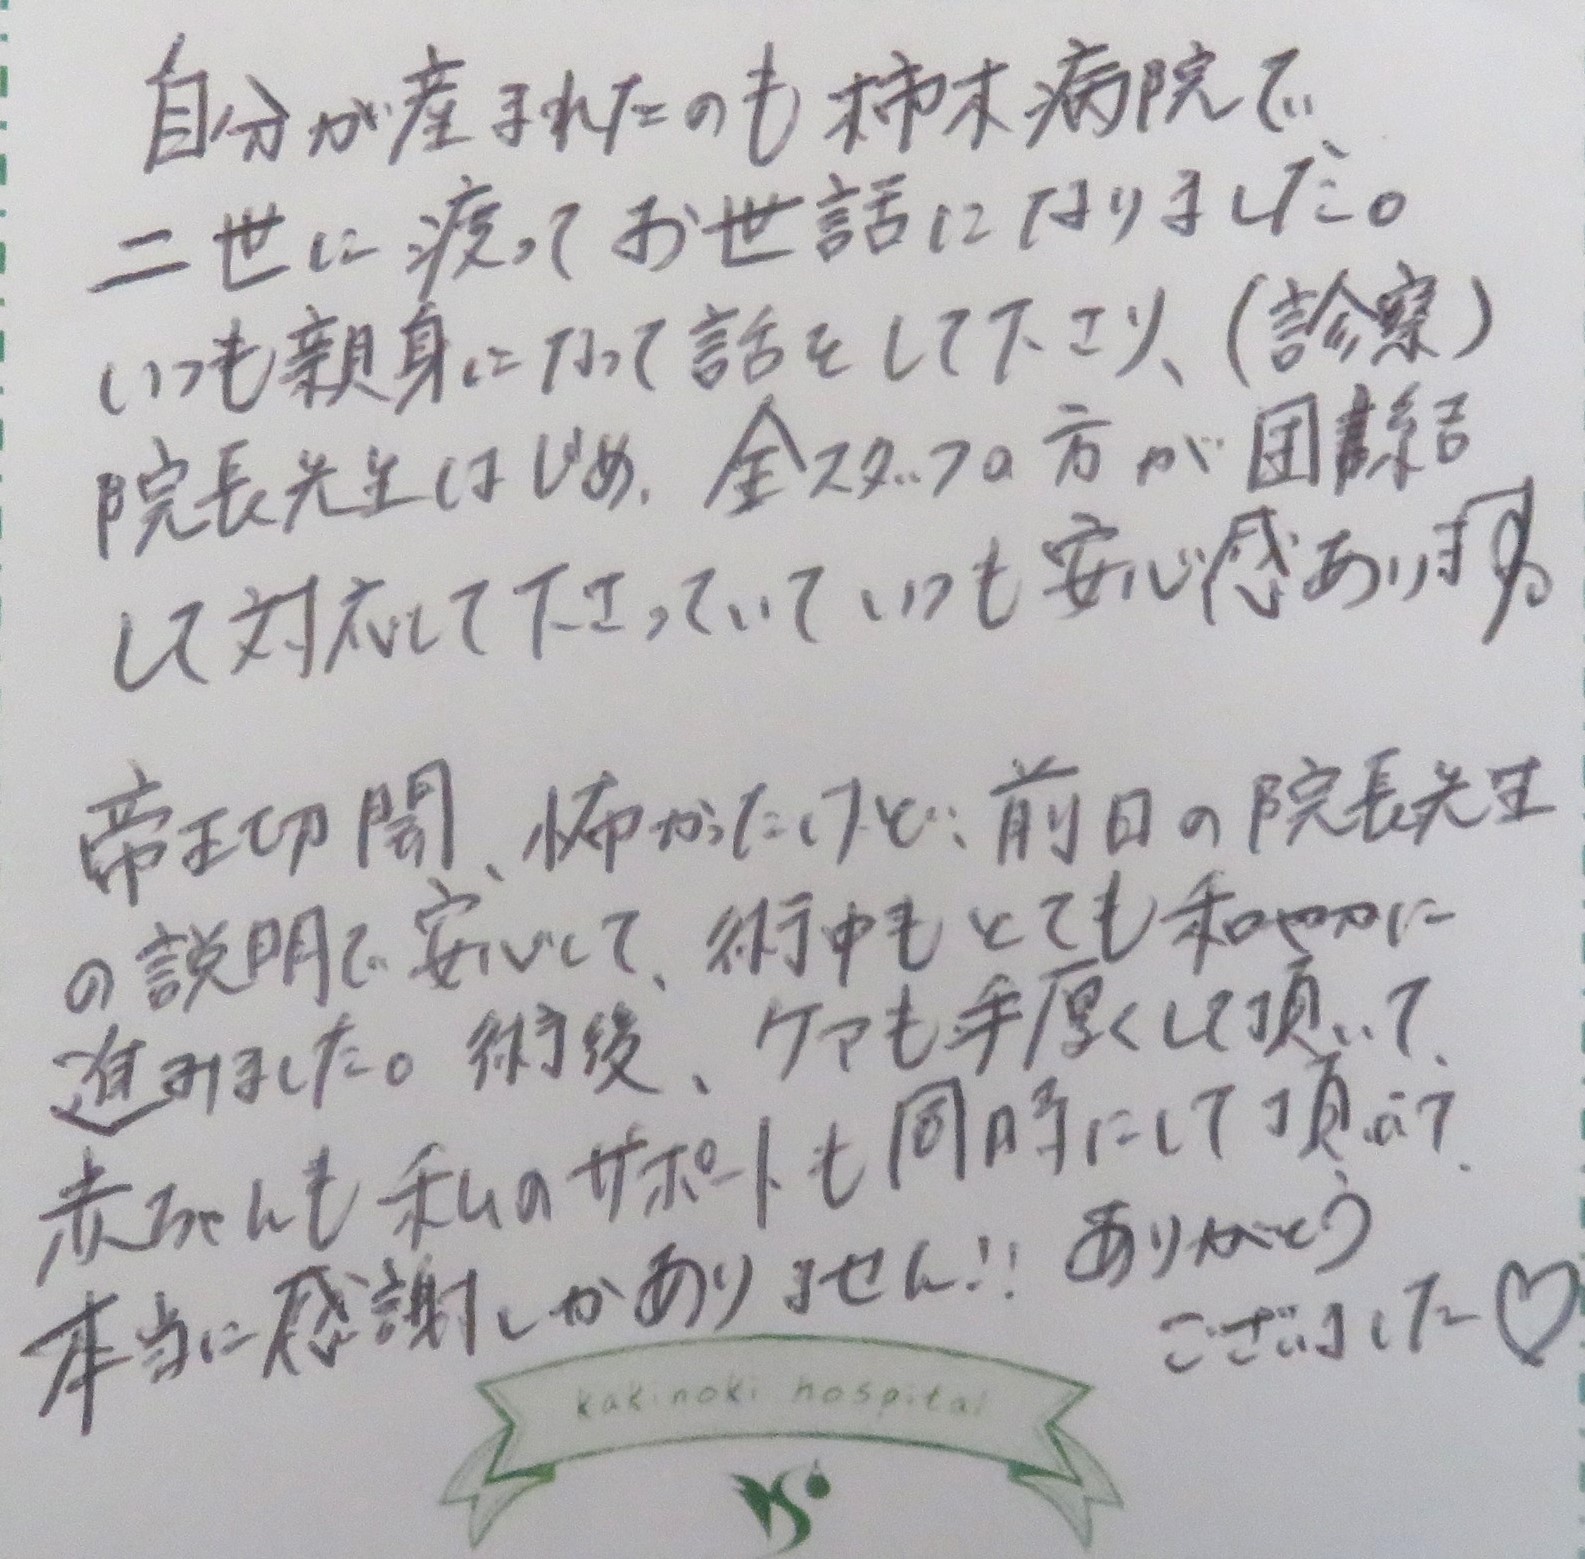 自分が産まれたのも柿木病院で、
二世に渡ってお世話になりました。
いつも親身になって話をして下さり、(診察)
院長先生はじめ、全スタッフの方が団結
して対応して下さっていていつも安心感あります。
帝王切開、怖かったけど、前日の院長先生
の説明で安心して、術中もとても和やかに
進みました。術後、ケアも手厚くして頂いて、
赤ちゃんも私のサポートも同時にして頂いて、
本当に感謝しかありません!! ありがとう
ございました♡
kakinoki hospital